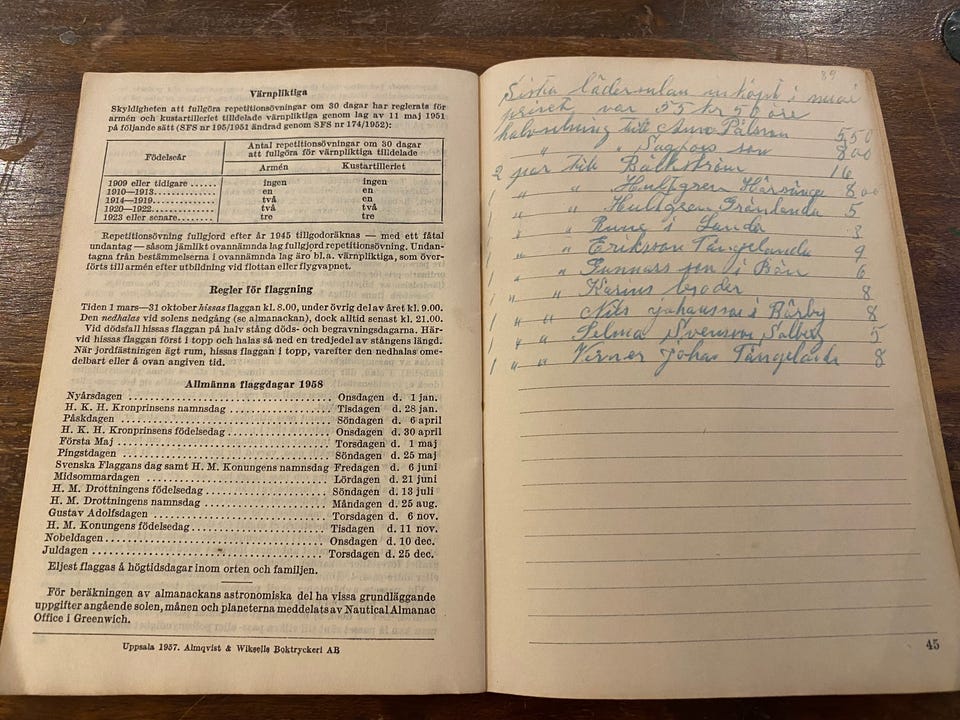 Värnpliktiga
Skyldigheten att fullgöra repetitionsövningar om 30 dagar har reglerats för
armén och kustartilleriet tilldelade värnpliktiga genom lag av 11 maj 1951
på följande sätt (SFS nr 195/1951 ändrad genom SFS nr 174/1952):
Födelseår
Antal repetitionsövningar om 30 dagar
att fullgöra för värnpliktiga tilldelade
Armén Kustartilleriet
1909 eller tidigare ...... ingen ingen
1910—1913............. en en
1914—1919............. två två
1920—1922............. två två
1923 eller senare........ tre tre
Repetitionsövning fullgjord efter år 1945 tillgodoräknas — med ett fåtal
undantag — såsom jämlikt ovannämnda lag fullgjord repetitionsövning. Undan-
tagna från bestämmelserna i ovannämnda lag äro bl.a. värnpliktiga, som över-
förts till armén efter utbildning vid flottan eller flygvapnet.
Regler för flaggning
Tiden 1 mars—31 oktober hissas flaggan kl. 8.00, under övrig del av året kl. 9.00.
Den nedhalas vid solens nedgång (se almanackan), dock alltid senast kl. 21.00.
Vid dödsfall hissas flaggan på halv stång döds- och begravningsdagarna. Här-
vid hissas flaggan först i topp och halas så ned en tredjedel av stångens längd.
När jordfästningen ägt rum, hissas flaggan i topp, varefter den nedhalas ome-
delbart eller å ovan angiven tid.
Allmänna flaggdagar 1958
Nyårsdagen ........ Onsdagen d. 1 jan.
H. K. H. Kronprinsens namnsdag ........ Tisdagen d. 28 jan.
Påskdagen ........ Söndagen d. 6 april
H. K. H. Kronprinsens födelsedag ........ Onsdagen d. 30 april
Första Maj ........ Torsdagen d. 1 maj
Pingstdagen ........ Söndagen d. 25 maj
Svenska Flaggans dag samt H. M. Konungens namnsdag Fredagen d. 6 juni
Midsommardagen ........ Lördagen d. 21 juni
H. M. Drottningens födelsedag ........ Söndagen d. 13 juli
H. M. Drottningens namnsdag ........ Måndagen d. 25 aug.
Gustav Adolfsdagen ........ Torsdagen d. 6 nov.
H. M. Konungens födelsedag ........ Tisdagen d. 11 nov.
Nobeldagen ........ Onsdagen d. 10 dec.
Juldagen ........ Torsdagen d. 25 dec.
Eljest flaggas å högtidsdagar inom orten och familjen.
För beräkningen av almanackans astronomiska del ha vissa grundläggande
uppgifter angående solen, månen och planeterna meddelats av Nautical Almanac
Office i Greenwich.
Uppsala 1957. Almqvist & Wiksells Boktryckeri AB
Sista lädersulan inköpt i maj
priset var 55 kr 50 öre
halvsulning till Anna Pålsson 5 50
" " son 8 00
2 par till Bäckström 16
1 " " Hultgren 8 00
1 " " Hultgren 5
1 " " i Sanda 8
1 " " Erikson Tångelanda 9
1 " " Gunnars son i 6
1 " " Karins broder 8
1 " " Nils johansson i Bärby 8
1 " " Selma Svenson Solberg 5
1 " " Verner johan Tångelanda 8
45